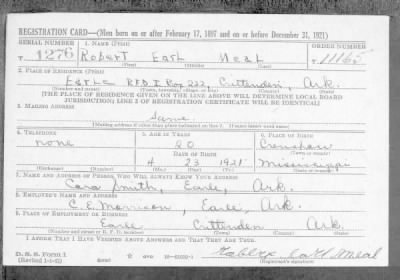 REGISTRATION CARD—(Men born on or after February 17, 1897 and on or before December 31, 1921)
SERIAL NUMBER 1. NAME (Print) ORDER NUMBER
T 1276 Robert Earl Neal T 11165
(First) (Middle) (Last)
2. PLACE OF RESIDENCE (Print)
Earle R.F.D. I Box 222, Crittenden, Ark.
(Number and street) (Town, township, village, or city) (County) (State)
[THE PLACE OF RESIDENCE GIVEN ON THE LINE ABOVE WILL DETERMINE LOCAL BOARD
JURISDICTION; LINE 2 OF REGISTRATION CERTIFICATE WILL BE IDENTICAL]
3. MAILING ADDRESS
Same
[Mailing address if other than place indicated on line 2. If same insert word same]
4. TELEPHONE 5. AGE IN YEARS 6. PLACE OF BIRTH
none 20 Crenshaw
DATE OF BIRTH (Town or county)
4 23 1921 Mississippi
(Exchange) (Number) (Mo.) (Day) (Yr.) (State or country)
7. NAME AND ADDRESS OF PERSON WHO WILL ALWAYS KNOW YOUR ADDRESS
Cora Smith, Earle, Ark.
8. EMPLOYER'S NAME AND ADDRESS
C. E. Morrison, Earle, Ark.
9. PLACE OF EMPLOYMENT OR BUSINESS
Earle Crittenden Ark.
(Number and street or R. F. D. number) (Town) (County) (State)
I AFFIRM THAT I HAVE VERIFIED ABOVE ANSWERS AND THAT THEY ARE TRUE.
D. S. S. Form 1
(Revised 1-1-42) (over) Robert Earl Neal
(Registrant's signature)